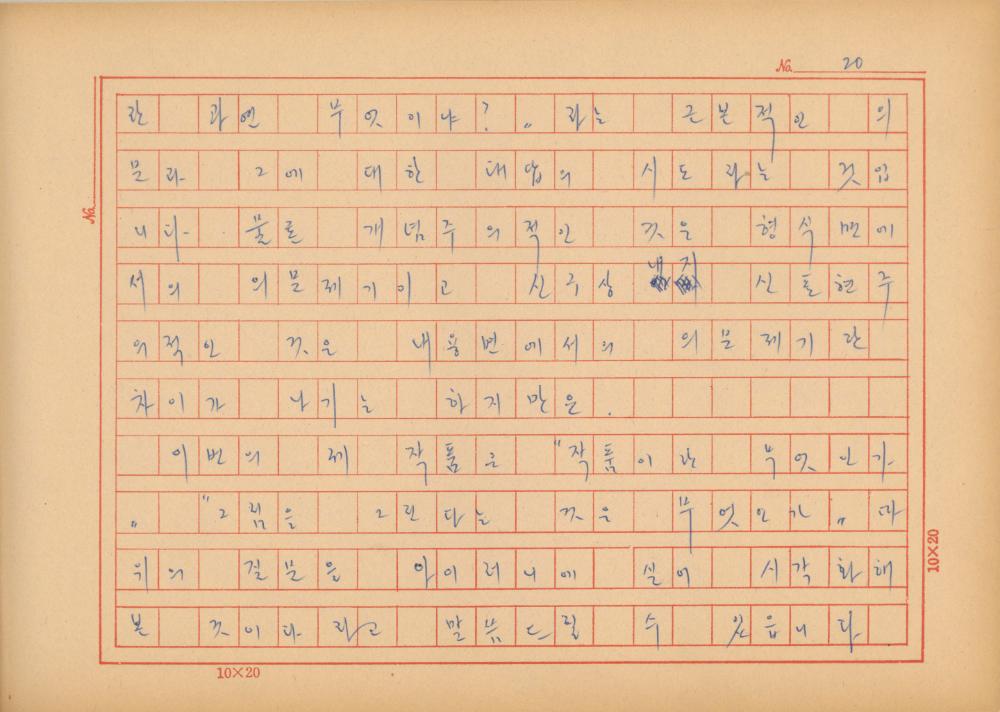 No. 20
란 과연 무엇이냐? „ 라는 근본적인 의
문과 그에 대한 대답의 시도라는 것입
니다. 물론 개념주의적인 것은 형식면에
서의 의문제기이고 신구상 내지 신표현주
의적인 것은 내용면에서의 의문제기란
차이가 나기는 하지만은.
이번의 제 작품은 "작품이란 무엇인가
„ "그림을 그린다는 것은 무엇인가 „ 따
위의 질문을 아이러니에 실어 시각화해
본 것이다 라고 말씀드릴 수 있읍니다
No.
10×20
10×20